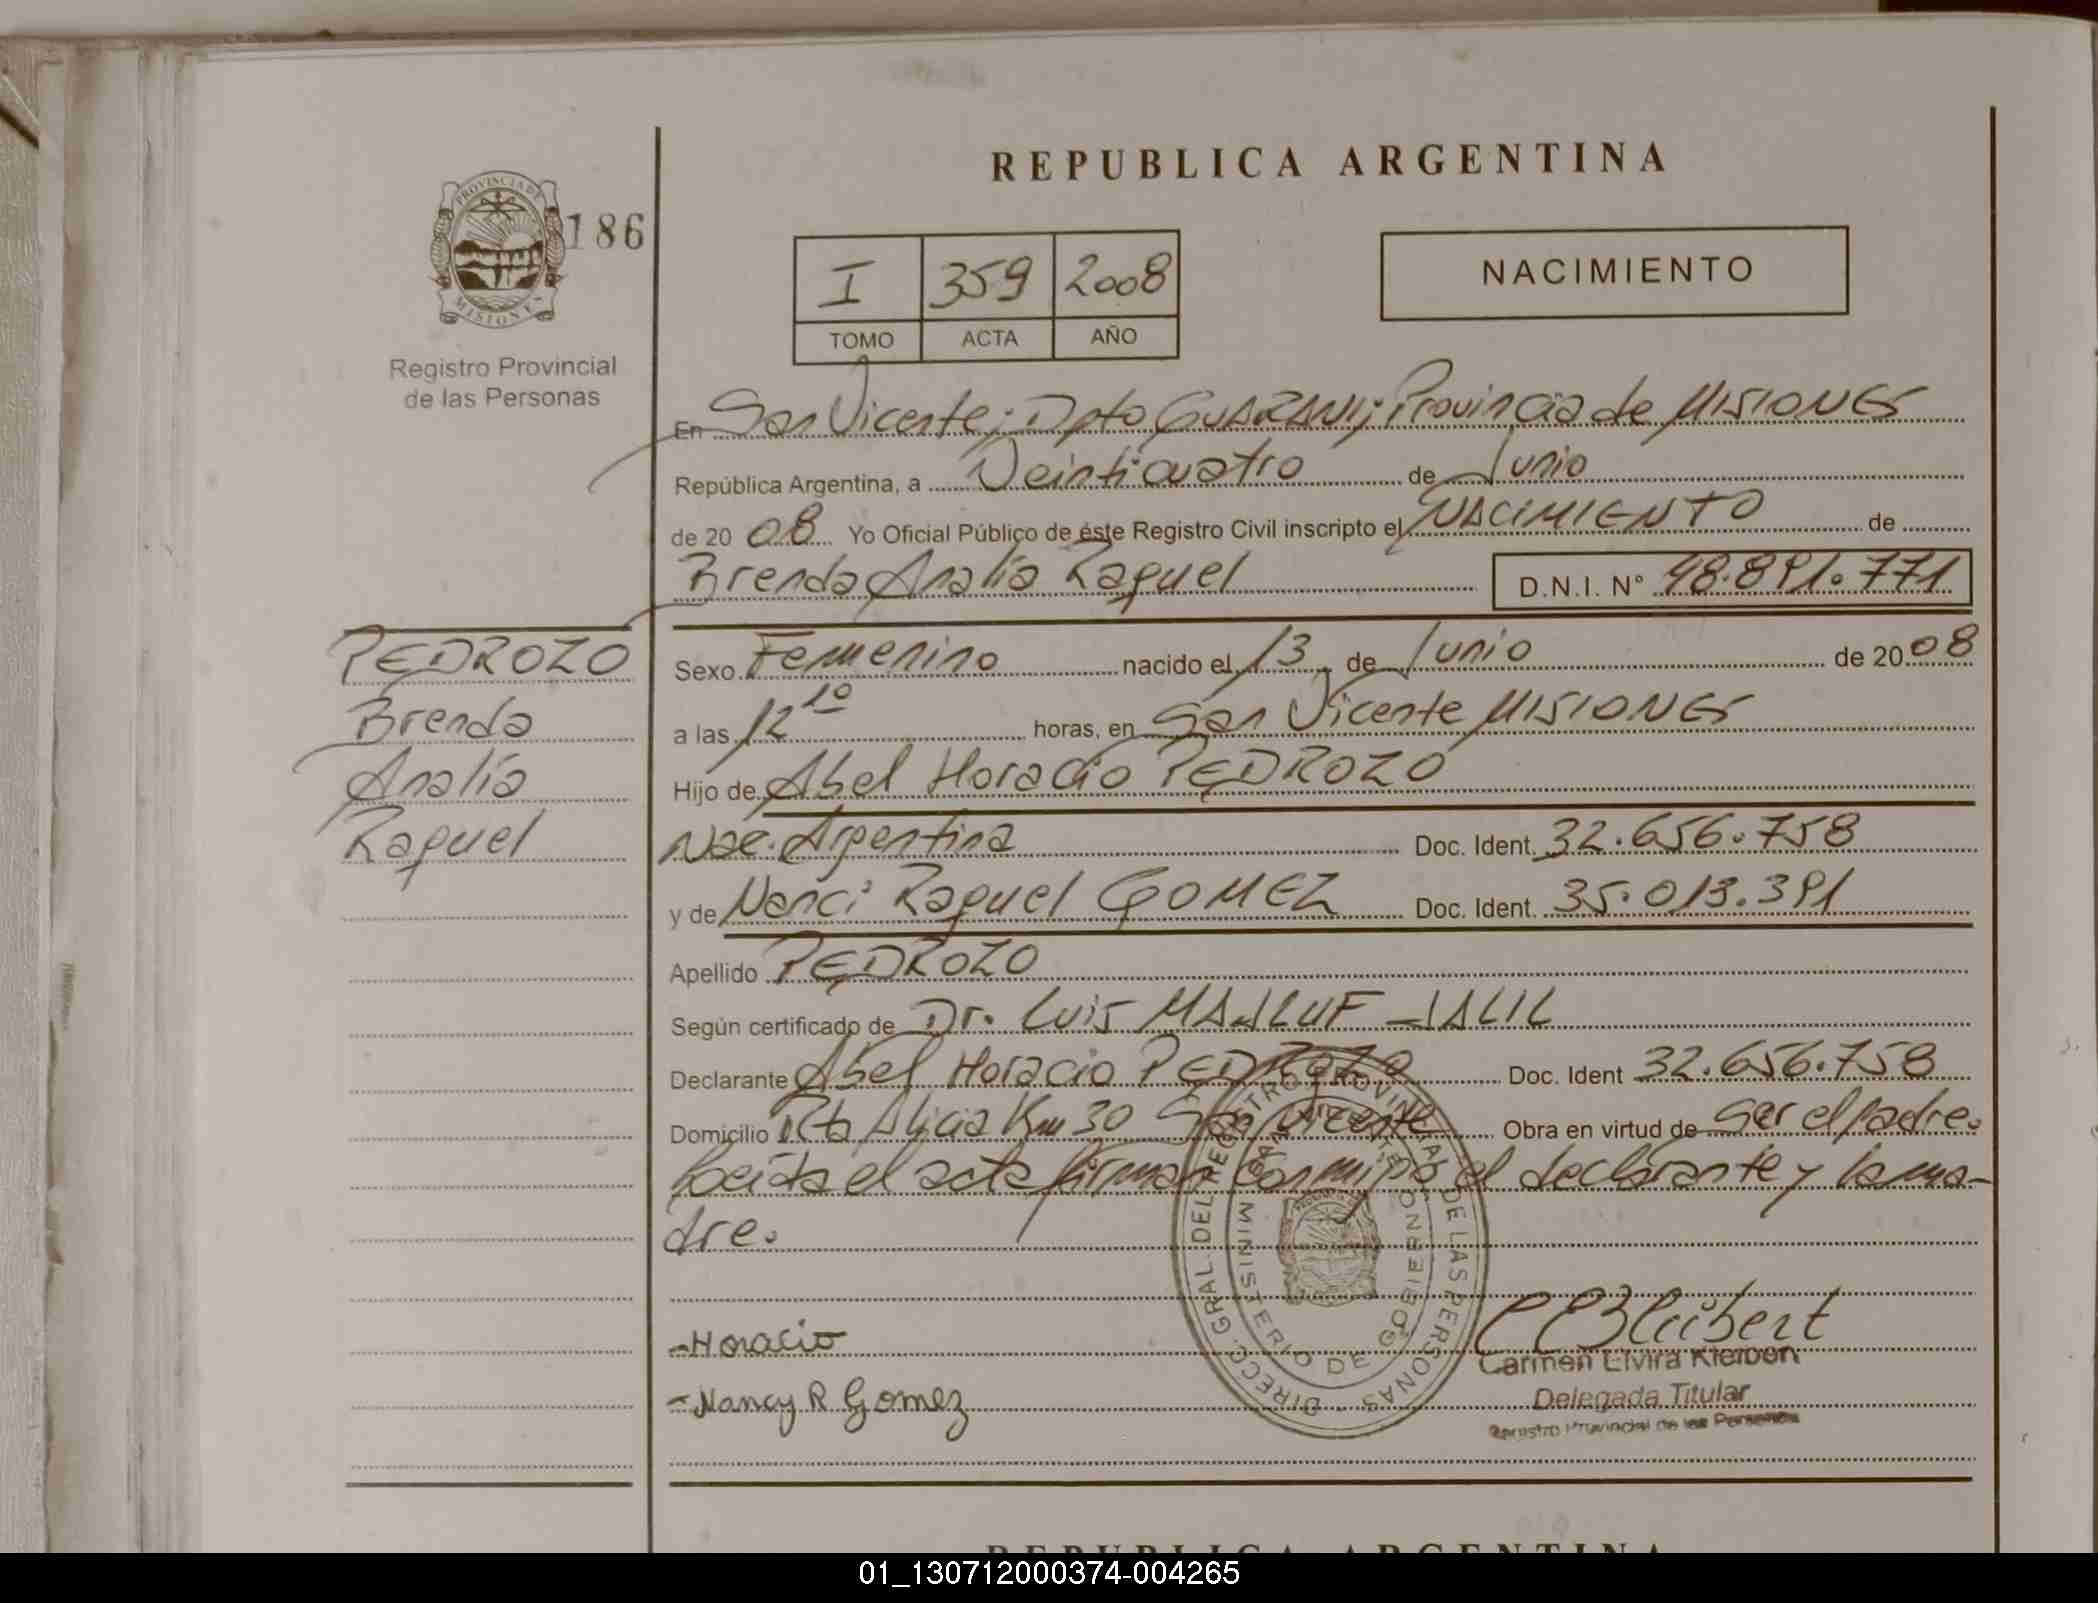 REPUBLICA ARGENTINA
PROVINCIA DE MISIONES
186
Registro Provincial
de las Personas
I 359 2008
TOMO ACTA AÑO
NACIMIENTO
En San Vicente; Dpto GUARANI; Provincia de MISIONES
República Argentina, a Veinticuatro de Junio
de 20 08 Yo Oficial Público de éste Registro Civil inscripto el NACIMIENTO de
Brenda Analía Raquel D.N.I. N° 48.891.771
PEDROZO
Brenda
Analía
Raquel
Sexo Femenino nacido el 13 de Junio de 20 08
a las 12 10 horas, en San Vicente MISIONES
Hijo de Abel Horacio PEDROZO
Nac. Argentina Doc. Ident. 32.656.758
y de Nanci Raquel GOMEZ Doc. Ident. 35.013.391
Apellido PEDROZO
Según certificado de Dr. Luis MAJLUF JALIL
Declarante Abel Horacio PEDROZO Doc. Ident 32.656.758
Domicilio Rta Alicia Km 30 San Vicente Obra en virtud de Ser el padre.
Leída el acta firman conmigo el declarante y la ma-
dre.
DIRECC. GRAL. DEL REGISTRO PROVINCIAL DE LAS PERSONAS
MINISTERIO DE GOBIERNO
-Horacio
-Nancy R Gomez
Carmen Elvira
Delegada Titular
Registro Provincial de las Personas
REPUBLICA ARGENTINA
01_130712000374-004265